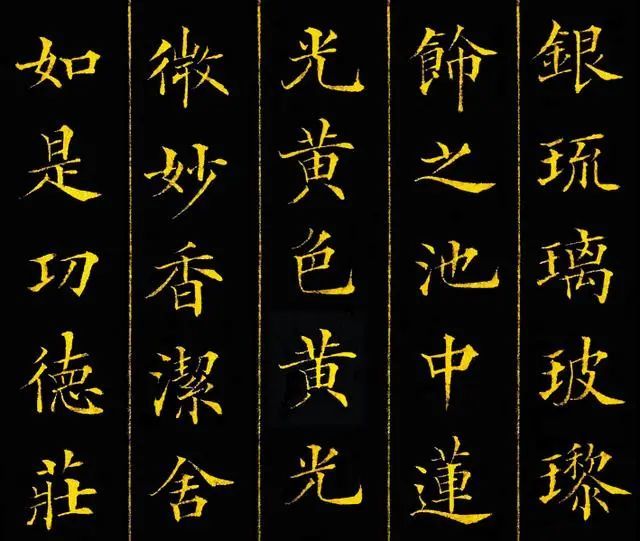 銀琉璃玻瓈
飾之池中蓮
光黄色黄光
微妙香潔舍
如是功德莊